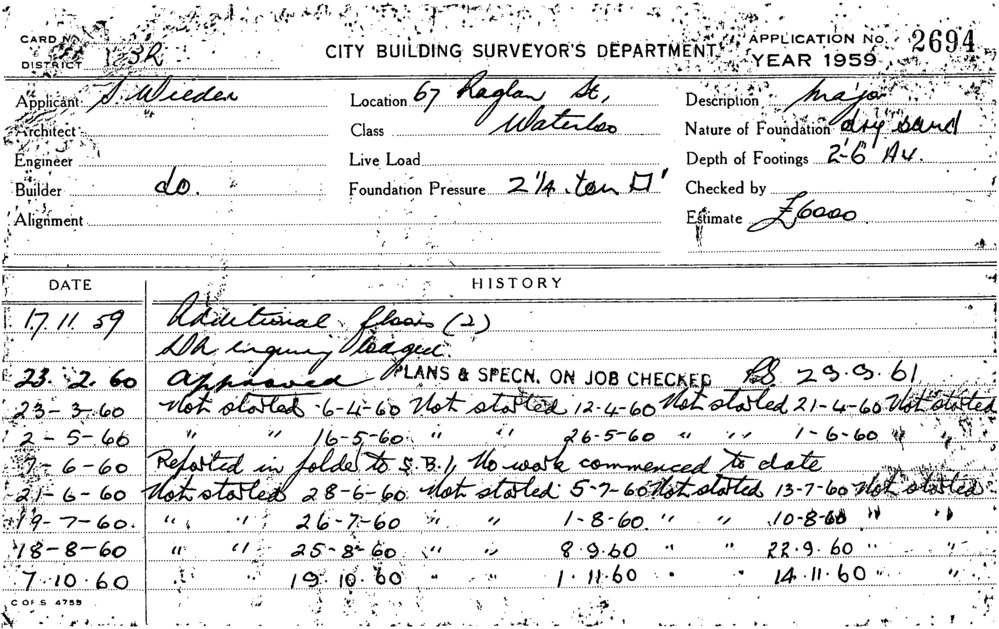 CARD No. CITY BUILDING SURVEYOR'S DEPARTMENT APPLICATION No. 2694
DISTRICT YEAR 1959
Applicant S. Wieder Location 67 Raglan St, Description major
Architect Class Waterloo Nature of Foundation dry sand
Engineer Live Load Depth of Footings 2'-6" Av.
Builder do. Foundation Pressure 2 1/4 ton □' Checked by
Alignment Estimate £6000
DATE HISTORY
17.11.59 Additional floors (2)
DA inquiry lodged.
23.2.60 Approved PLANS & SPECN. ON JOB CHECKED 29.9.61
23-3-60 Not started 6-4-60 Not started 12-4-60 Not started 21-4-60 Not started
2-5-60 " " 16-5-60 " " 26-5-60 " " 1-6-60 " "
7-6-60 Reported in folder to S.B.I, No work commenced to date
21-6-60 Not started 28-6-60 Not started 5-7-60 Not started 13-7-60 Not started
19-7-60. " " 26-7-60 " " 1-8-60 " " 10-8-60 " "
18-8-60 " " 25-8-60 " " 8.9.60 " " 22.9.60 " "
7.10.60 " " 19.10.60 " " 1.11.60 " " 14.11.60 " "
C OF S 4755